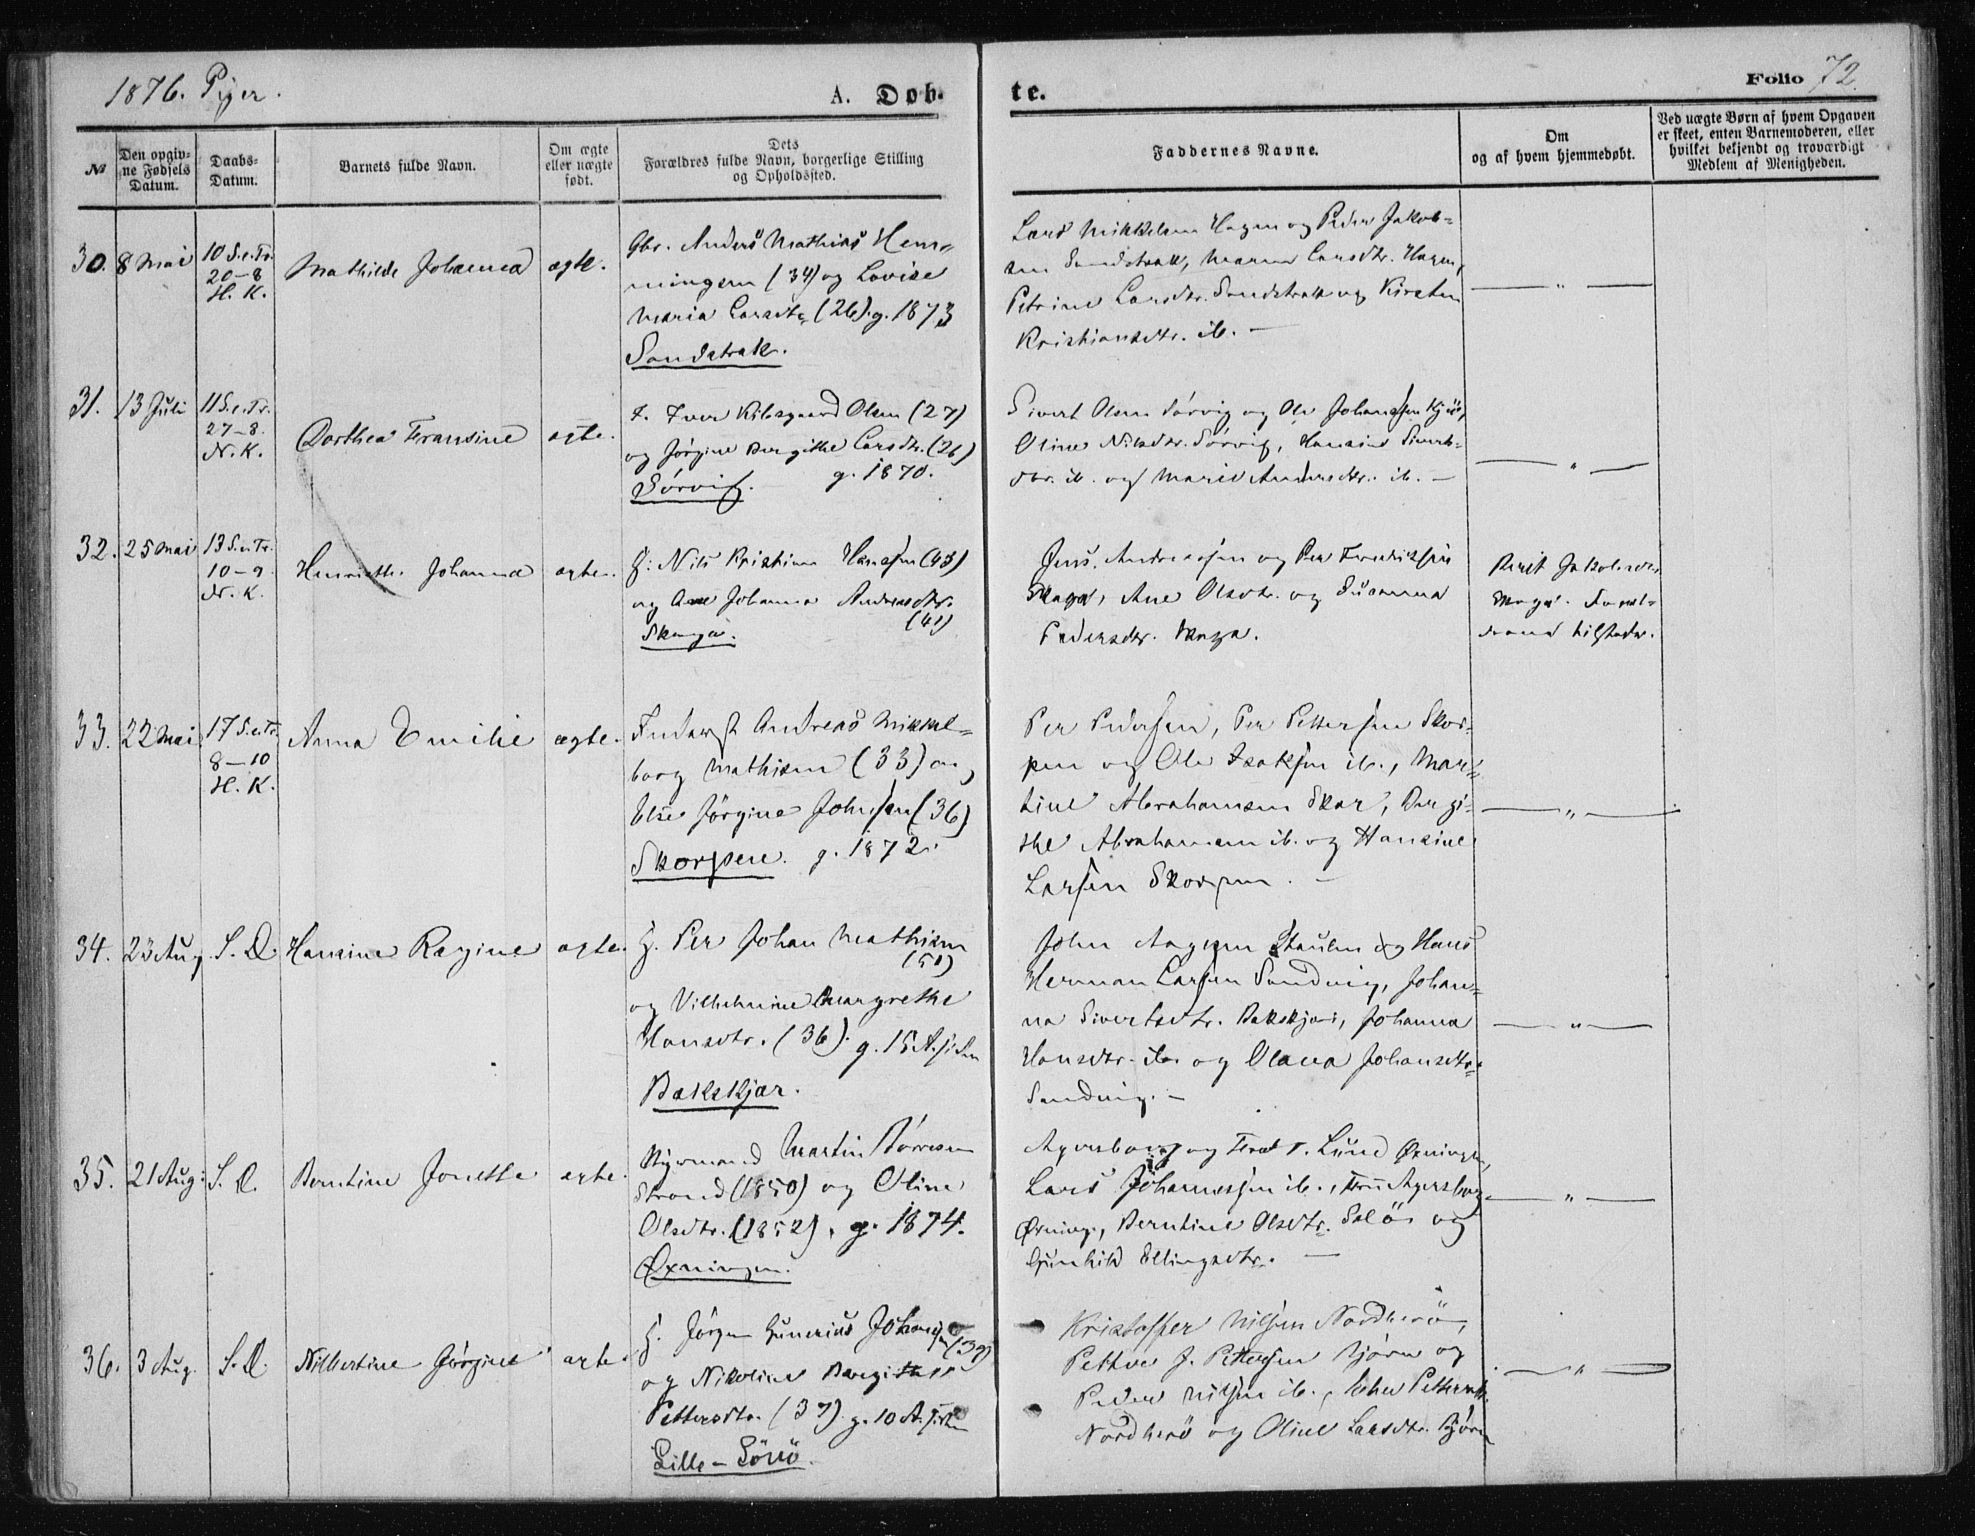 1876. Piger.
A. Døb-
te.
Folio 72.
№
Den opgiv-
ne Fødsels
Datum.
Daabs-
Datum.
Barnets fulde Navn.
Om ægte
eller uægte
født.
Dets
Forældres fulde Navn, borgerlige Stilling
og Opholdssted.
Faddernes Navne.
Om
og af hvem hjemmedøbt.
Ved uægte Børn af hvem Opgaven
er skeet, enten Barnemoderen, eller
hvilket bekjendt og troværdigt
Medlem af Menigheden.
30. 8 Mai
10 S. e. Tr.
20-8
H. K.
Mathilde Johanna
ægte.
Gbr. Anders Mathias Hen-
ningsen (34) og Lovise
Maria Larsdtr. (26). g. 1873
Sandstrak.
Lars Mikkelsen Hagen og Peder Jakob-
sen Sandstrak, Maren Larsdtr. Hagen,
Petrine Larsdtr. Sandstrak og Kirsten
Kristiansdtr. ib. —
— " —
31. 13 Juli
11 S. e. Tr.
27-8.
N. K.
Dorthea Fransine
ægte.
F. Iver Kilsgaard Olsen (27)
og Jørgine Bergithe Larsdtr. (26)
Sørvig. g. 1870.
Sivert Olsen Sørvig og Ole Johansen
Oline Nilsdtr. Sørvig, Hansine Siverts-
dtr. ib. og Marie Andersdtr. ib. —
— " —
32. 25 Mai
13 S. e. Tr.
10-9
N. K.
Henriette Johanna
ægte.
G. Nils Kristian Hansen (43)
og Ane Johanna Andreasdtr.
(41)
Skaga.
Jens Andreassen og Per Fredriksen
Skaga, Ane Olsdtr. og Susanna
Pedersdtr. Skaga.
Berit Jakobsdtr.
Skaga. Foræl-
drene tilstede.
33. 22 Mai
17 S. e. Tr.
8-10
H. K.
Anna Emilie
ægte.
Inderst Andreas Mikkel-
borg Mathisen (33) og
Else Jørgine Johnsen (36)
Skorpen. g. 1872.
Per Pedersen, Per Pettersen Skor-
pen og Ole Isaksen ib., Mar-
tine Abrahamsen Skar, Bergi-
the Abrahamsen ib. og Hansine
Larsen Skorpen. —
— " —
34. 23 Aug.
S. D.
Hansine Regine
ægte.
G. Per Johan Mathisen
(51)
og Vilhelmine Margrethe
Hansdtr. (36). g. 15 A. siden
Bakskjær.
John Aagesen Staulen og Hans
Herman Larsen Sandvig, Johan-
na Sivertsdtr. Bakskjær, Johanna
Hansdtr. ib. og Olava Johansdtr.
Sandvig. —
— " —
35. 21 Aug.
S. D.
Berntine Jonette
ægte.
Styrmand Martin Tørresen
Strand (1850) og Oline
Olsdtr. (1852), g. 1874.
Øxningen.
Agersborg og Fred. T. Lund Øxningen,
Lars Johannessen ib., Fru Agersborg
Øxning., Berntine Olsdtr. Salø og
Gunhild Ellingsdtr. —
— " —
36. 3 Aug.
S. D.
Nilbertine Jørgine
ægte.
G. Jørgen Gunerius Johansen (39)
og Nikoline Bergitha
Pettersdtr. (37) g. 10 A. siden
Lille-Sörö.
Kristoffer Nilsen Nordherö,
Petter J. Pettersen Bjørn og
Peder Nilsen ib., Pettersdtr.
Nordherö og Oline Larsdtr. Bjørn
— " —